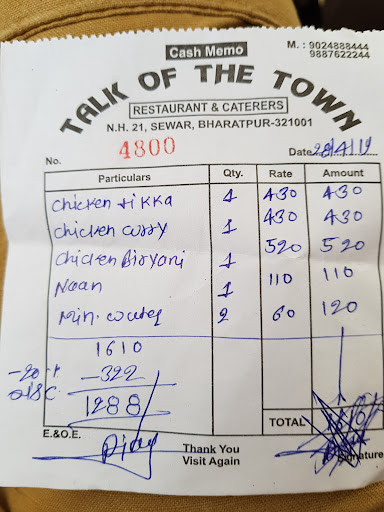 Cash Memo
M. : 9024888444
9887622244
TALK OF THE TOWN
RESTAURANT & CATERERS
N.H. 21, SEWAR, BHARATPUR-321001
No. 4800 Date 28/4/19
Particulars Qty. Rate Amount
Chicken tikka 1 430 430
Chicken curry 1 430 430
Chicken Biryani 1 520 520
Naan 1 110 110
Min. water 2 60 120
1610
-20% -322
disc. 1288
TOTAL
E.&O.E.
Thank You
Visit Again
Signature